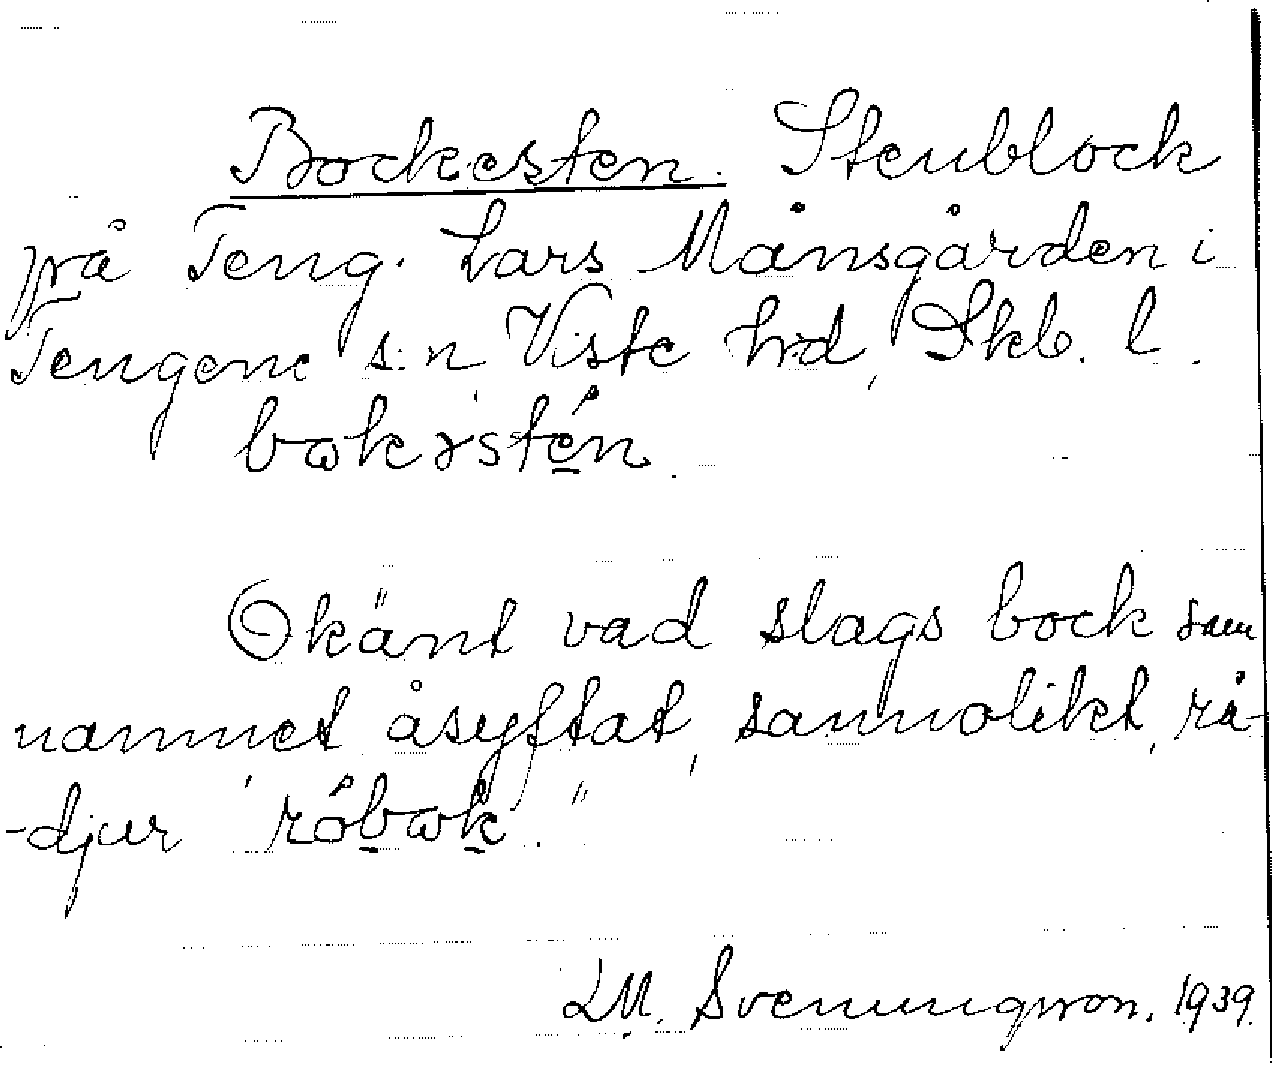 Bockesten. Stenblock
på Teng. Lars Månsgården i
Tengene s:n, Viste hrd, Skb. l.
bɷkɘstén.
Okänt vad slags bock som
namnet åsyftat, sannolikt, rå-
-djur "róbɷk".
LM. Svenungsson. 1939.